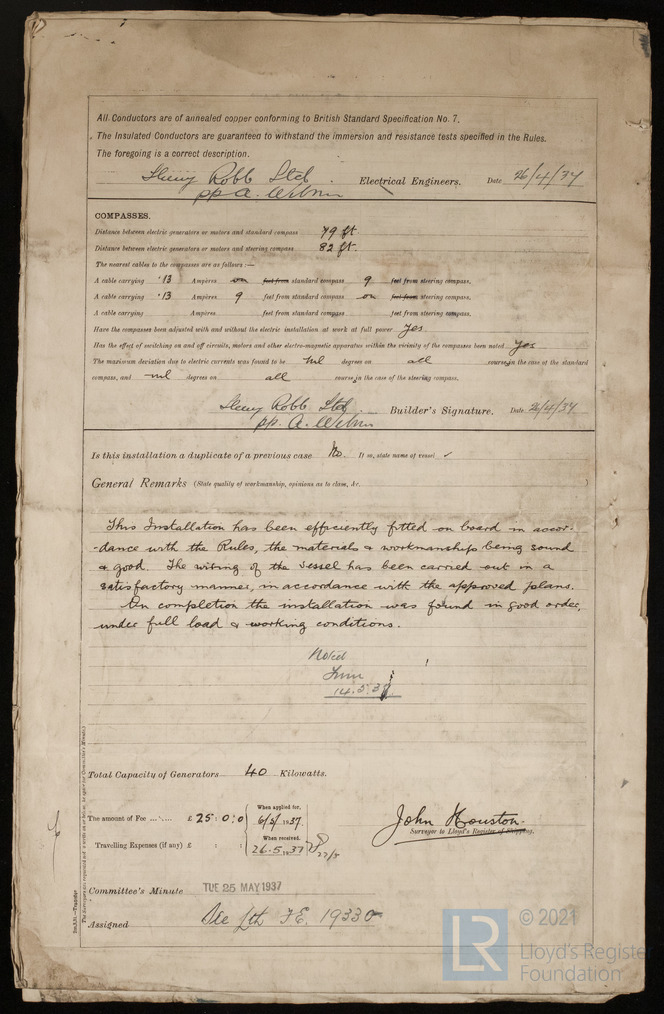 All Conductors are of annealed copper conforming to British Standard Specification No. 7.
The Insulated Conductors are guaranteed to withstand the immersion and resistance tests specified in the Rules.
The foregoing is a correct description.
Henry Robb Ltd. Electrical Engineers. Date 26/4/37
pp A.
COMPASSES.
Distance between electric generators or motors and standard compass 79 ft
Distance between electric generators or motors and steering compass 82 ft.
The nearest cables to the compasses are as follows:—
A cable carrying ·13 Ampères on feet from standard compass 9 feet from steering compass.
A cable carrying ·13 Ampères 9 feet from standard compass on feet from steering compass.
A cable carrying Ampères feet from standard compass feet from steering compass.
Have the compasses been adjusted with and without the electric installation at work at full power Yes
Has the effect of switching on and off circuits, motors and other electro-magnetic apparatus within the vicinity of the compasses been noted Yes
The maximum deviation due to electric currents was found to be Nil degrees on all course in the case of the standard
compass, and nil degrees on all course in the case of the steering compass.
Henry Robb Ltd. Builder's Signature. Date 26/4/37
pp. A.
Is this installation a duplicate of a previous case No. If so, state name of vessel ✓
General Remarks (State quality of workmanship, opinions as to class, &c. )
This Installation has been efficiently fitted on board in accor-
-dance with the Rules, the materials & workmanship being sound
& good. The wiring of the vessel has been carried out in a
satisfactory manner, in accordance with the approved plans.
On completion the installation was found in good order,
under full load & working conditions.
Noted
14.5.37
Total Capacity of Generators 40 Kilowatts.
The amount of Fee ... £ 25 : 0 : 0 When applied for, 6/5/1937.
Travelling Expenses (if any) £ : : When received, 26.5.1937 22/5
John Houston.
Surveyor to Lloyd's Register of Shipping.
Committee's Minute TUE 25 MAY 1937
Assigned See Lth F.E. 19330
5m.5.31.—Transfer
LR © 2021
Lloyd's Register
Foundation